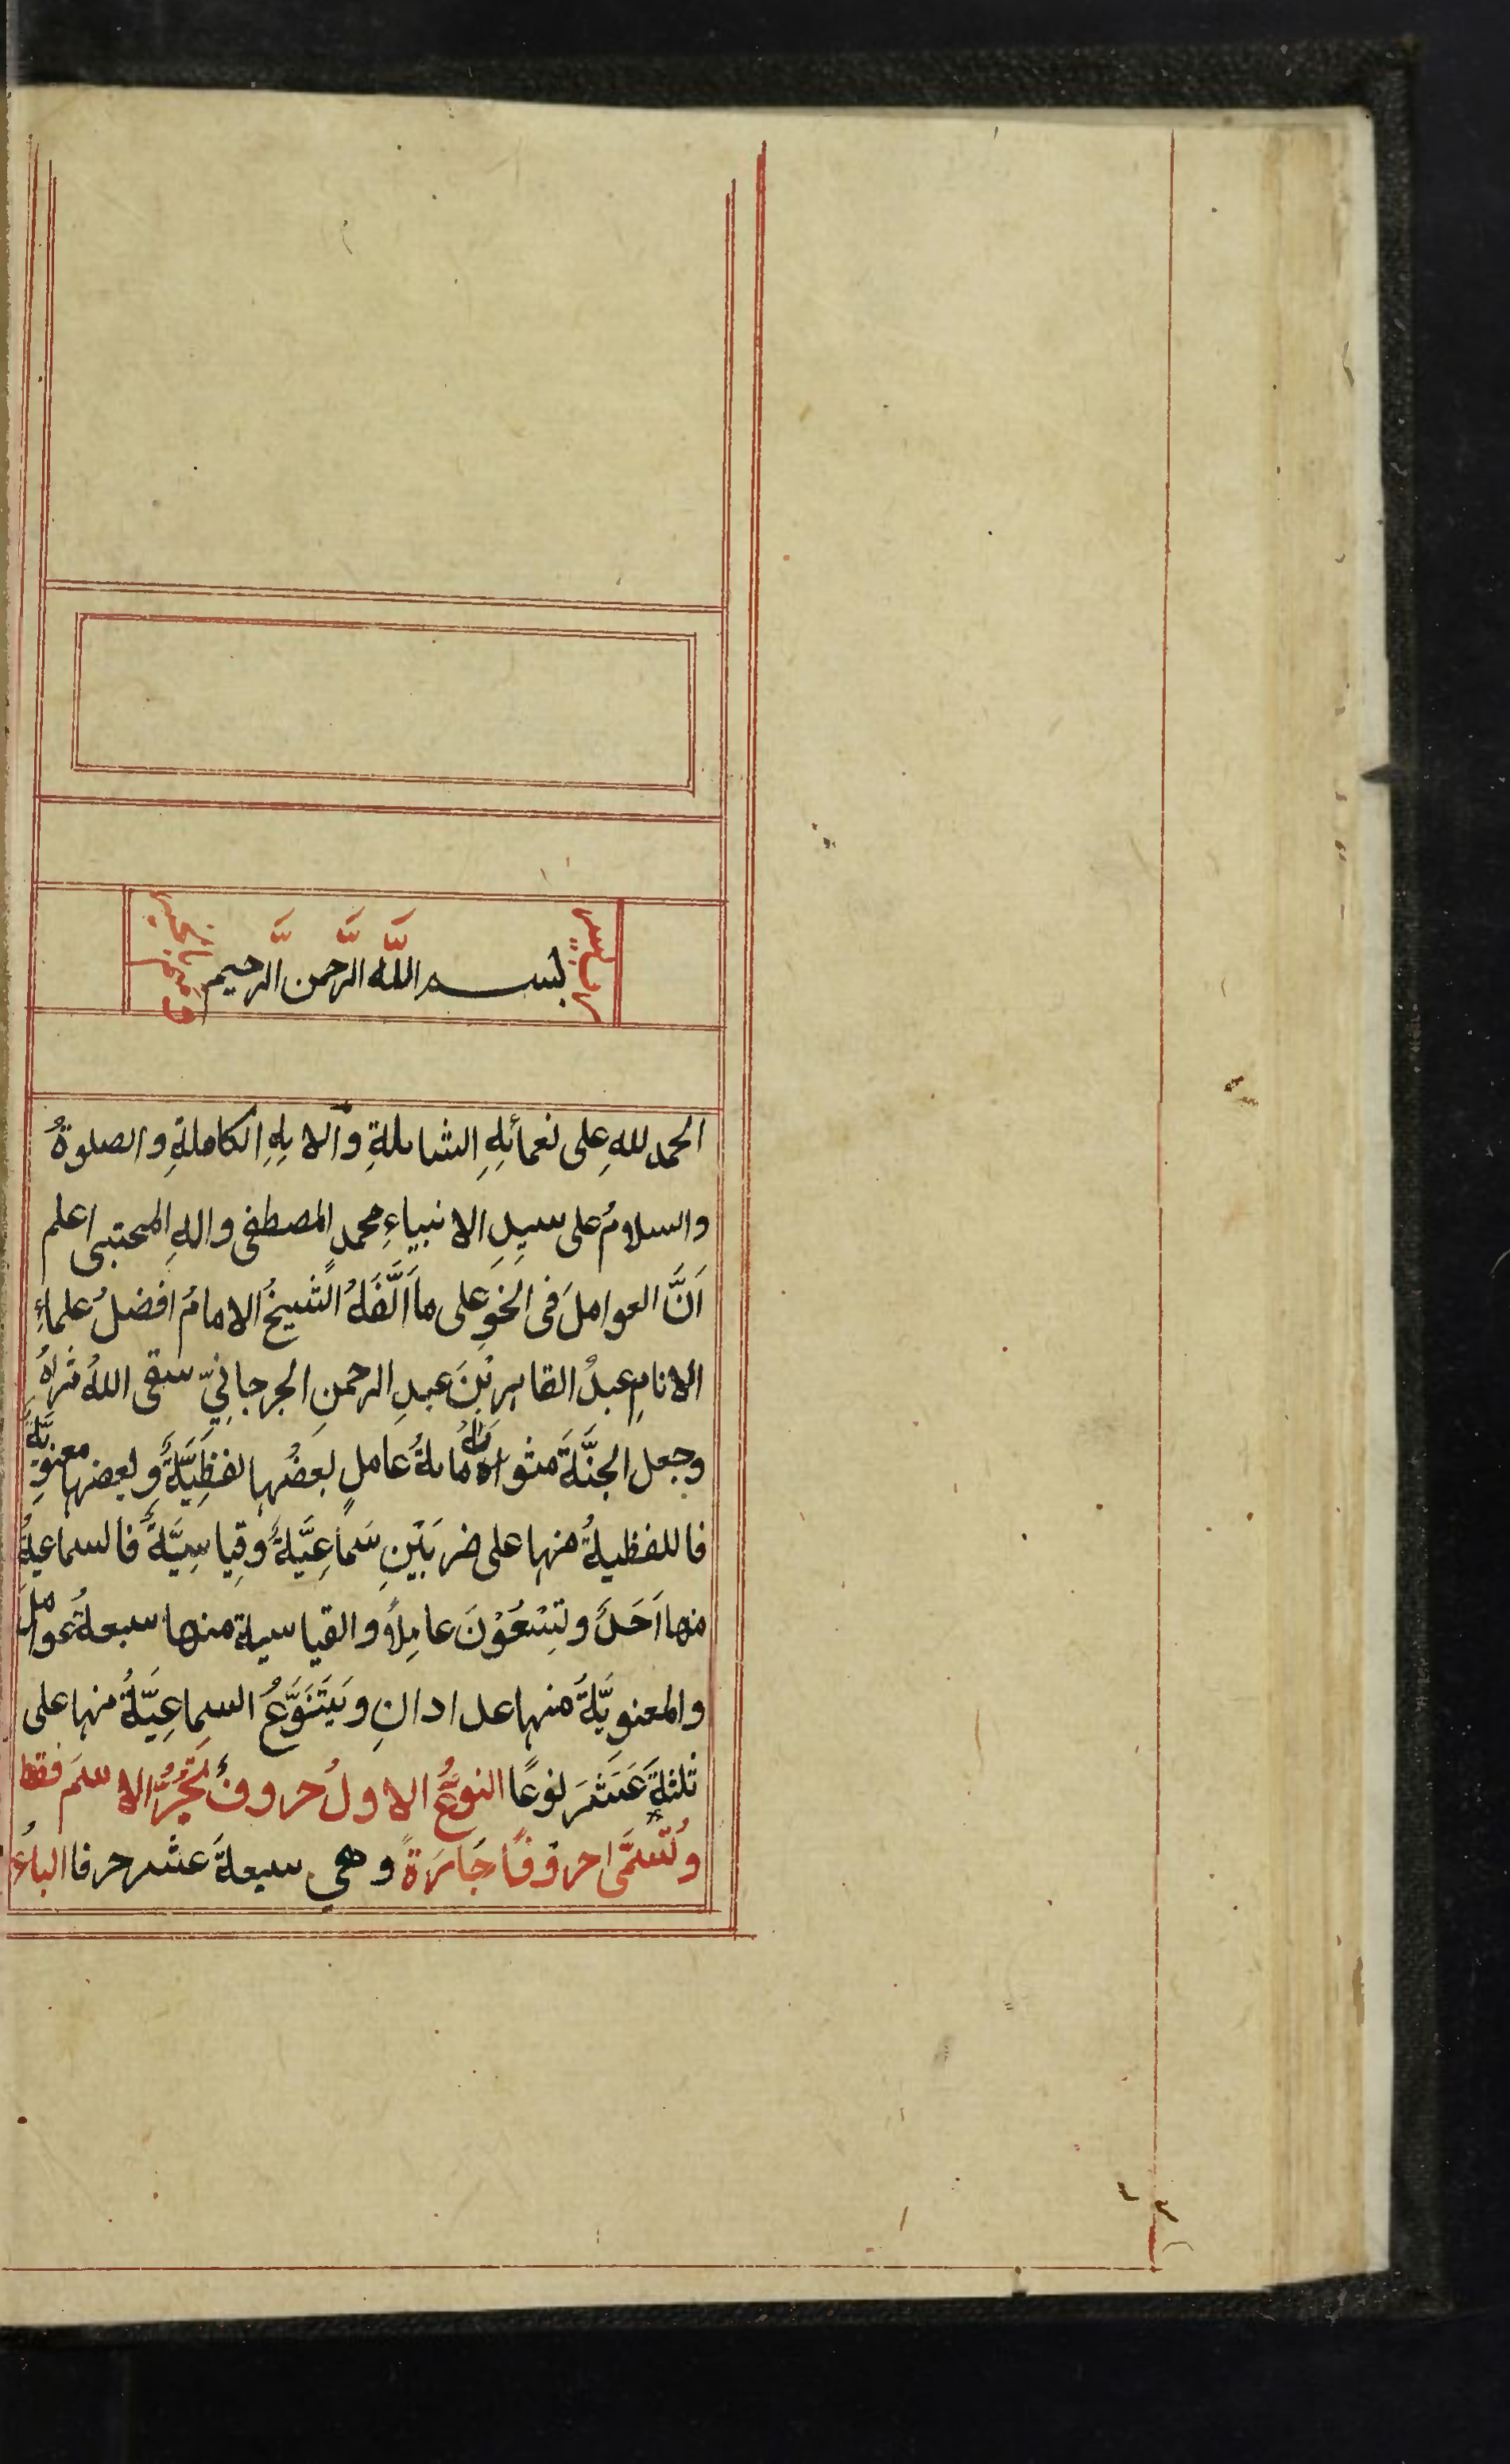 رب يسر
بسم اللَّه الرَّحمن الرَّحيم
وتمم بالخير
الحمد للهِ على نعمائِهِ الشاملةِ وآلايِهِ الكاملةِ والصلوةُ
والسلامُ على سيدِ الانبياءِ محمدٍ المصطفى والهِ المجتبى اعلم
اَنَّ العواملَ فى النحوِ على ما اَلَّفَهُ الشيخُ الامامُ افضلُ علماءِ
الانامِ عبدُ القاهرِ بْنَ عبدِ الرحمنِ الجرجانِيّ سقى اللهُ ثراهُ
وجعل الجنَّةَ مثواهُ مايةُ عاملٍ بعضُها لفظِيَّةٌ وبعضها معنوِيَّةٌ
فاللفظيةُ منها على ضربَيْنِ سَمَاعِيَّةٌ وقِياسِيَّةٌ فالسماعيةُ
منها اَحَدٌ وتِسْعُوْنَ عامِلاً والقياسية منها سبعةُ عواملَ
والمعنويَّةُ منها عددانِ ويَتَنَوَّعُ السماعِيَّةُ منها على
ثلثةَ عَشَرَ نوعًا النوعُ الاولُ حروفٌ تَجُرُّ الاسمَ فقط
وتُسَمَّى حروْفًا جَارَةً وهي سبعةَ عشر حرفا الباءُ